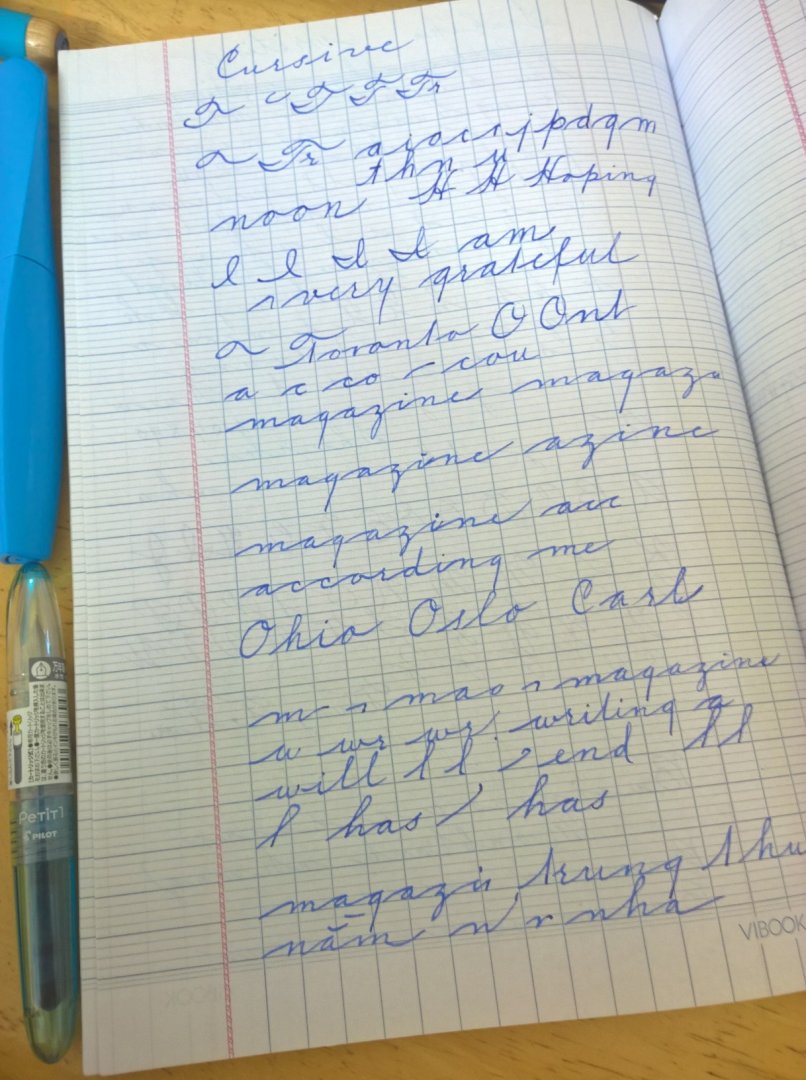 Cursive
T T F Tr
Tr a j o c s j p d q m
t h n y
noon H H Hoping
I I I I am
very grateful
Toronto O Ont
a c co cou
magazine magazi
magazine azine
magazine acc
according me
Ohio Oslo Carl
m mao magazine
w wr wr writing a
will l l end ll
l has has
magazi trung thu
năm nha
VIBOOK
Petit1
PILOT